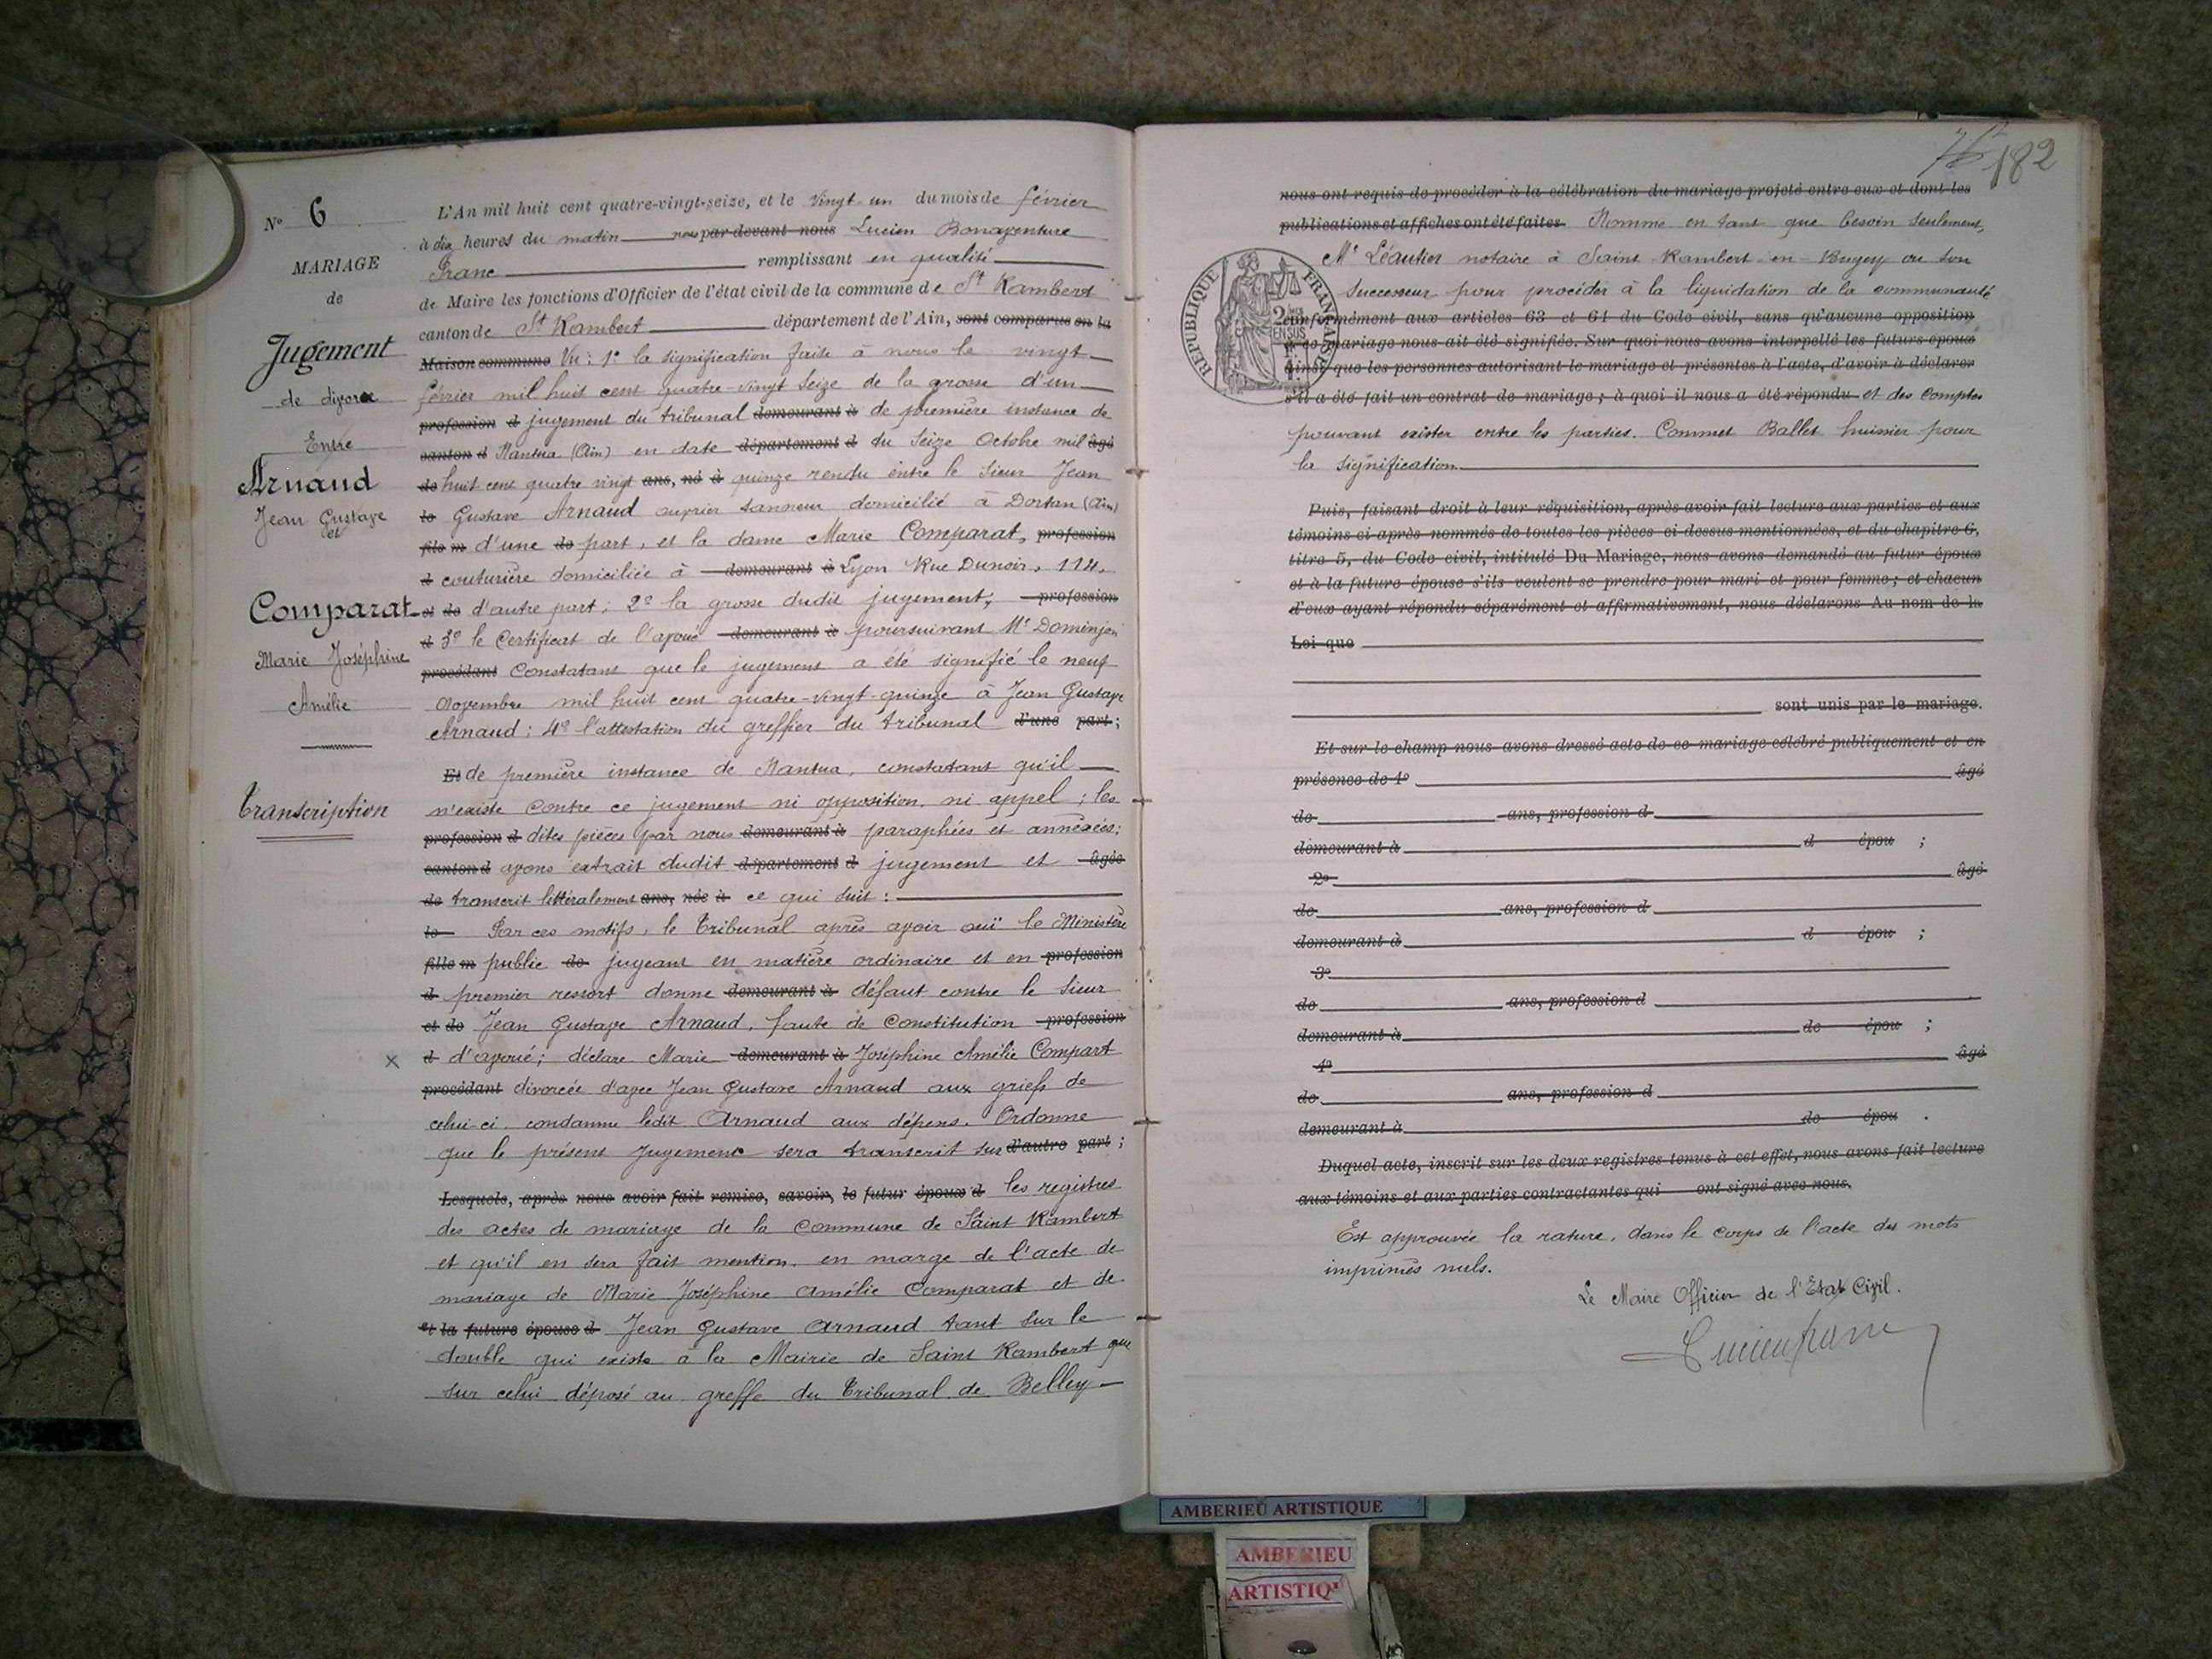 N° 6
MARIAGE
de
Jugement
de divorce
Entre
Arnaud
Jean Gustave
et
Comparat
Marie Joséphine
Amélie
Transcription
L'An mil huit cent quatre-vingt-seize, et le vingt un du mois de février
à dix heures du matin par devant nous Lucien Bonaventure
Franc remplissant en qualité
de Maire les fonctions d'Officier de l'état civil de la commune de St Rambert
canton de St Rambert département de l'Ain, sont comparus en la
Maison commune Vu : 1° la signification faite à nous le vingt
février mil huit cent quatre-vingt seize de la grosse d'un
profession d jugement du tribunal demeurant à de première instance de
canton d Nantua (Ain) en date département d du seize Octobre mil âgé
de huit cent quatre vingt ans, né à quinze rendu entre le sieur Jean
le Gustave Arnaud ouvrier tanneur domicilié à Dortan (Ain)
fils m d'une de part, et la dame Marie Comparat, profession
d couturière domiciliée à demeurant à Lyon Rue Dunoir, 114,
et de d'autre part ; 2° la grosse dudit jugement ; profession
d 3° le Certificat de l'avoué demeurant à poursuivant Me Dominjon
procédant Constatant que le jugement a été signifié le neuf
Novembre mil huit cent quatre-vingt-quinze à Jean Gustave
Arnaud ; 4° l'attestation du greffier du tribunal d'une part ;
Et de première instance de Nantua, constatant qu'il
n'existe contre ce jugement ni opposition, ni appel ; les
profession d dites pièces par nous demeurant à paraphées et annexées ;
canton d avons extrait dudit département d jugement et âgée
de transcrit littéralement ans, née à ce qui suit :
le Par ces motifs, le Tribunal après avoir ouï le Ministère
fille m public de jugeant en matière ordinaire et en profession
d premier ressort donne demeurant à défaut contre le sieur
et de Jean Gustave Arnaud, faute de Constitution profession
x d d'avoué ; déclare Marie demeurant à Joséphine Amélie Compart
procédant divorcée d'avec Jean Gustave Arnaud aux griefs de
celui-ci condamne ledit Arnaud aux dépens. Ordonne
que le présent Jugement sera transcrit sur d'autre part ;
Lesquels, après nous avoir fait remise, savoir, le futur époux d les registres
des actes de mariage de la Commune de Saint Rambert
et qu'il en sera fait mention en marge de l'acte de
mariage de Marie Joséphine Amélie Comparat et de
et la future épouse d Jean Gustave Arnaud tant sur le
double qui existe à la Mairie de Saint Rambert que
sur celui déposé au greffe du Tribunal de Belley
182
nous ont requis de procéder à la célébration du mariage projeté entre eux et dont les
publications et affiches ont été faites Nomme en tant que besoin seulement,
Me Léautier notaire à Saint-Rambert-en-Bugey ou son
Successeur pour procéder à la liquidation de la communauté
conformément aux articles 63 et 64 du Code civil, sans qu'aucune opposition
à ce mariage nous ait été signifiée. Sur quoi nous avons interpellé les futurs époux
ainsi que les personnes autorisant le mariage et présentes à l'acte, d'avoir à déclarer
s'il a été fait un contrat de mariage ; à quoi il nous a été répondu et des Comptes
pouvant exister entre les parties. Commet Ballet huissier pour
la signification
RÉPUBLIQUE FRANÇAISE
Puis, faisant droit à leur réquisition, après avoir fait lecture aux parties et aux
témoins ci-après nommés de toutes les pièces ci-dessus mentionnées, et du chapitre 6,
titre 5, du Code civil, intitulé Du Mariage, nous avons demandé au futur époux
et à la future épouse s'ils veulent se prendre pour mari et pour femme ; et chacun
d'eux ayant répondu séparément et affirmativement, nous déclarons Au nom de la
Loi que
sont unis par le mariage.
Et sur le champ nous avons dressé acte de ce mariage célébré publiquement et en
présence de 1° âgé
de ans, profession d
demeurant à d épou ;
2° âgé
de ans, profession d
demeurant à d épou ;
3°
de ans, profession d
demeurant à de épou ;
4° âgé
de ans, profession d
demeurant à de épou .
Duquel acte, inscrit sur les deux registres tenus à cet effet, nous avons fait lecture
aux témoins et aux parties contractantes qui ont signé avec nous.
Est approuvée la rature, dans le corps de l'acte des mots
imprimés nuls.
Le Maire Officier de l'Etat Civil.
Lucien Franc
AMBERIEU ARTISTIQUE
AMBERIEU
ARTISTIQ